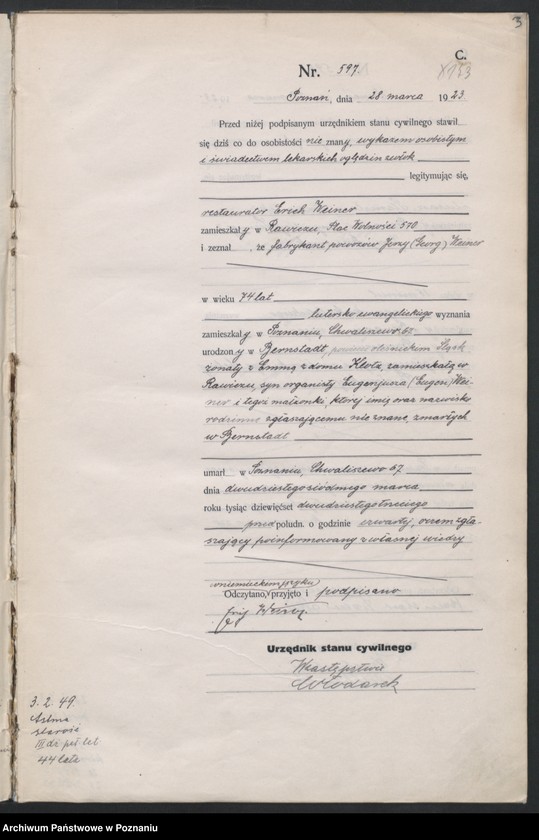 3
C.
Nr. 597.
Poznań, dnia 28 marca 1923.
Przed niżej podpisanym urzędnikiem stanu cywilnego stawił
się dziś co do osobistości nie znany, wykazem osobistym
i świadectwem lekarskich oględzin zwłok
legitymując się,
restaurator Erich Weiner
zamieszkały w Rawiczu, Plac Wolności 570
i zeznał, że fabrykant powozów Jerzy (Georg) Weiner
w wieku 74 lat
lutersko ewangelickiego wyznania
zamieszkały w Poznaniu, Chwaliszewo 65
urodzony w Bernstadt, powiat oleśnickim Śląsk
żonaty z Emmą z domu Klotz, zamieszkałą w
Rawiczu, syn organisty Eugenjusza (Eugen) Wei-
ner i tegoż małżonki, której imię oraz nazwisko
rodzinne zgłaszającemu nie znane, zmarłych
w Bernstadt
umarł w Poznaniu, Chwaliszewo 67
dnia dwudziestego siódmego marca
roku tysiąc dziewięćset dwudziestego trzeciego
przed połudn. o godzinie czwartej, o czem zgła-
szający poinformowany z własnej wiedzy
w niemieckim języku
Odczytano, przyjęto i podpisano
Urzędnik stanu cywilnego
W zastępstwie
Włodarek
3. 2. 49.
Astma
starość
44 lata
Archiwum Państwowe w Poznaniu